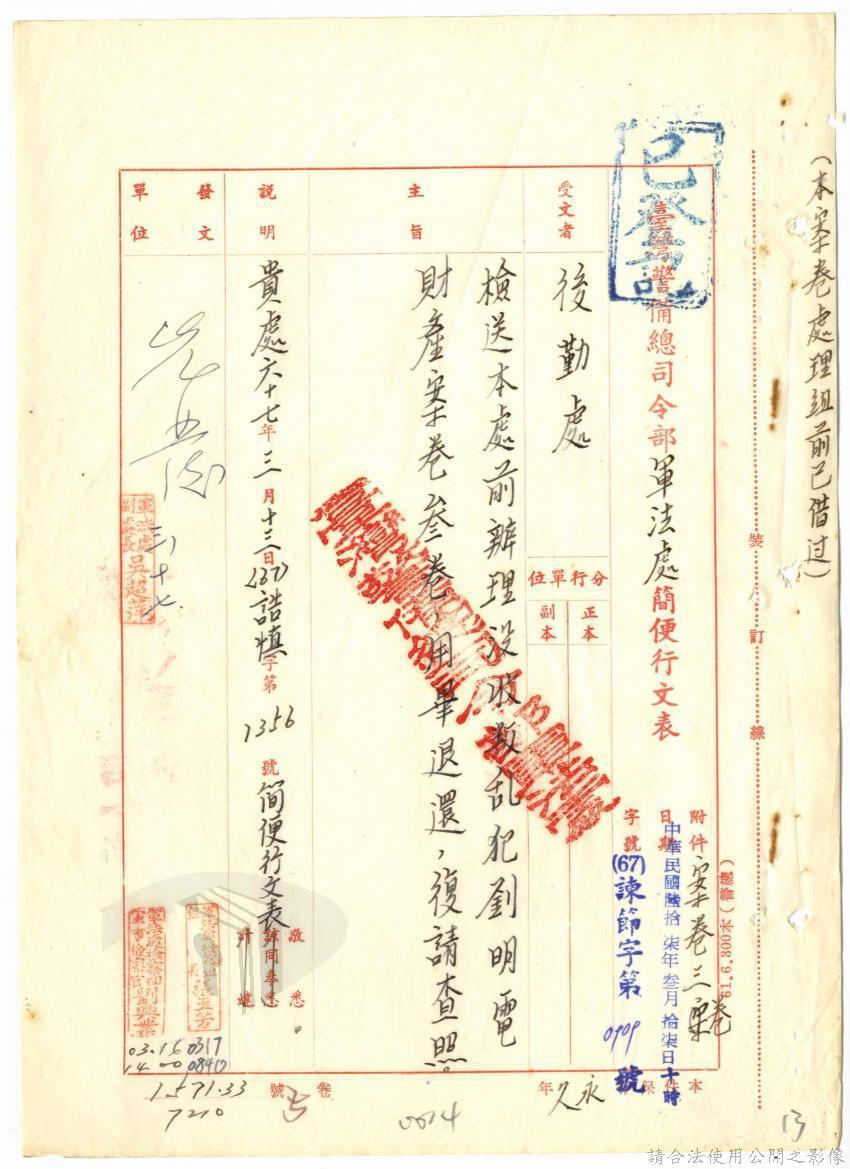 （本案卷處理組前已借过）
裝訂線
61.6.300本（普總）
已登記
臺灣警備總司令部軍法處簡便行文表
附件 案卷三宗卷
日期 中華民國陸拾柒年叁月拾柒日十時
字號 (67)諫節字第0909號
受文者 後勤處
分行單位
正本
副本
主旨
檢送本處前辦理沒收叛乱犯劉明電
財產案卷叁卷，用畢退還，復請查照。
說明
貴處六十七年三月十三日(67)誥慎字第1356號簡便行文表敬悉。
發文單位
三、十七
軍法處副處長吳超萍
03.16 0317
14 00 0840
本件保存永久年
卷號
1571.33
7210
0014
13
請合法使用公開之影像